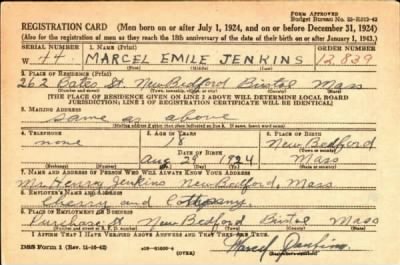 FORM APPROVED
Budget Bureau No. 33-R013-42
REGISTRATION CARD (Men born on or after July 1, 1924, and on or before December 31, 1924)
(Also for the registration of men as they reach the 18th anniversary of the date of their birth on or after January 1, 1943.)
SERIAL NUMBER 1. NAME (Print) ORDER NUMBER
W 44 MARCEL EMILE JENKINS 12,839
2. PLACE OF RESIDENCE (Print)
262 Bates St New Bedford Bristol Mass
[THE PLACE OF RESIDENCE GIVEN ON LINE 2 ABOVE WILL DETERMINE LOCAL BOARD
JURISDICTION; LINE 2 OF REGISTRATION CERTIFICATE WILL BE IDENTICAL]
3. MAILING ADDRESS
same as above
4. TELEPHONE 5. AGE IN YEARS 6. PLACE OF BIRTH
none 18 New Bedford
DATE OF BIRTH
Aug 29 1924 Mass
7. NAME AND ADDRESS OF PERSON WHO WILL ALWAYS KNOW YOUR ADDRESS
Mr. Henry Jenkins New Bedford, Mass
8. EMPLOYER'S NAME AND ADDRESS
Cherry and Company
9. PLACE OF EMPLOYMENT OR BUSINESS
Purchase St New Bedford Bristol Mass
I AFFIRM THAT I HAVE VERIFIED ABOVE ANSWERS AND THAT THEY ARE TRUE.
DSS Form 1 (Rev. 11-16-42) (OVER) Marcel Jenkins